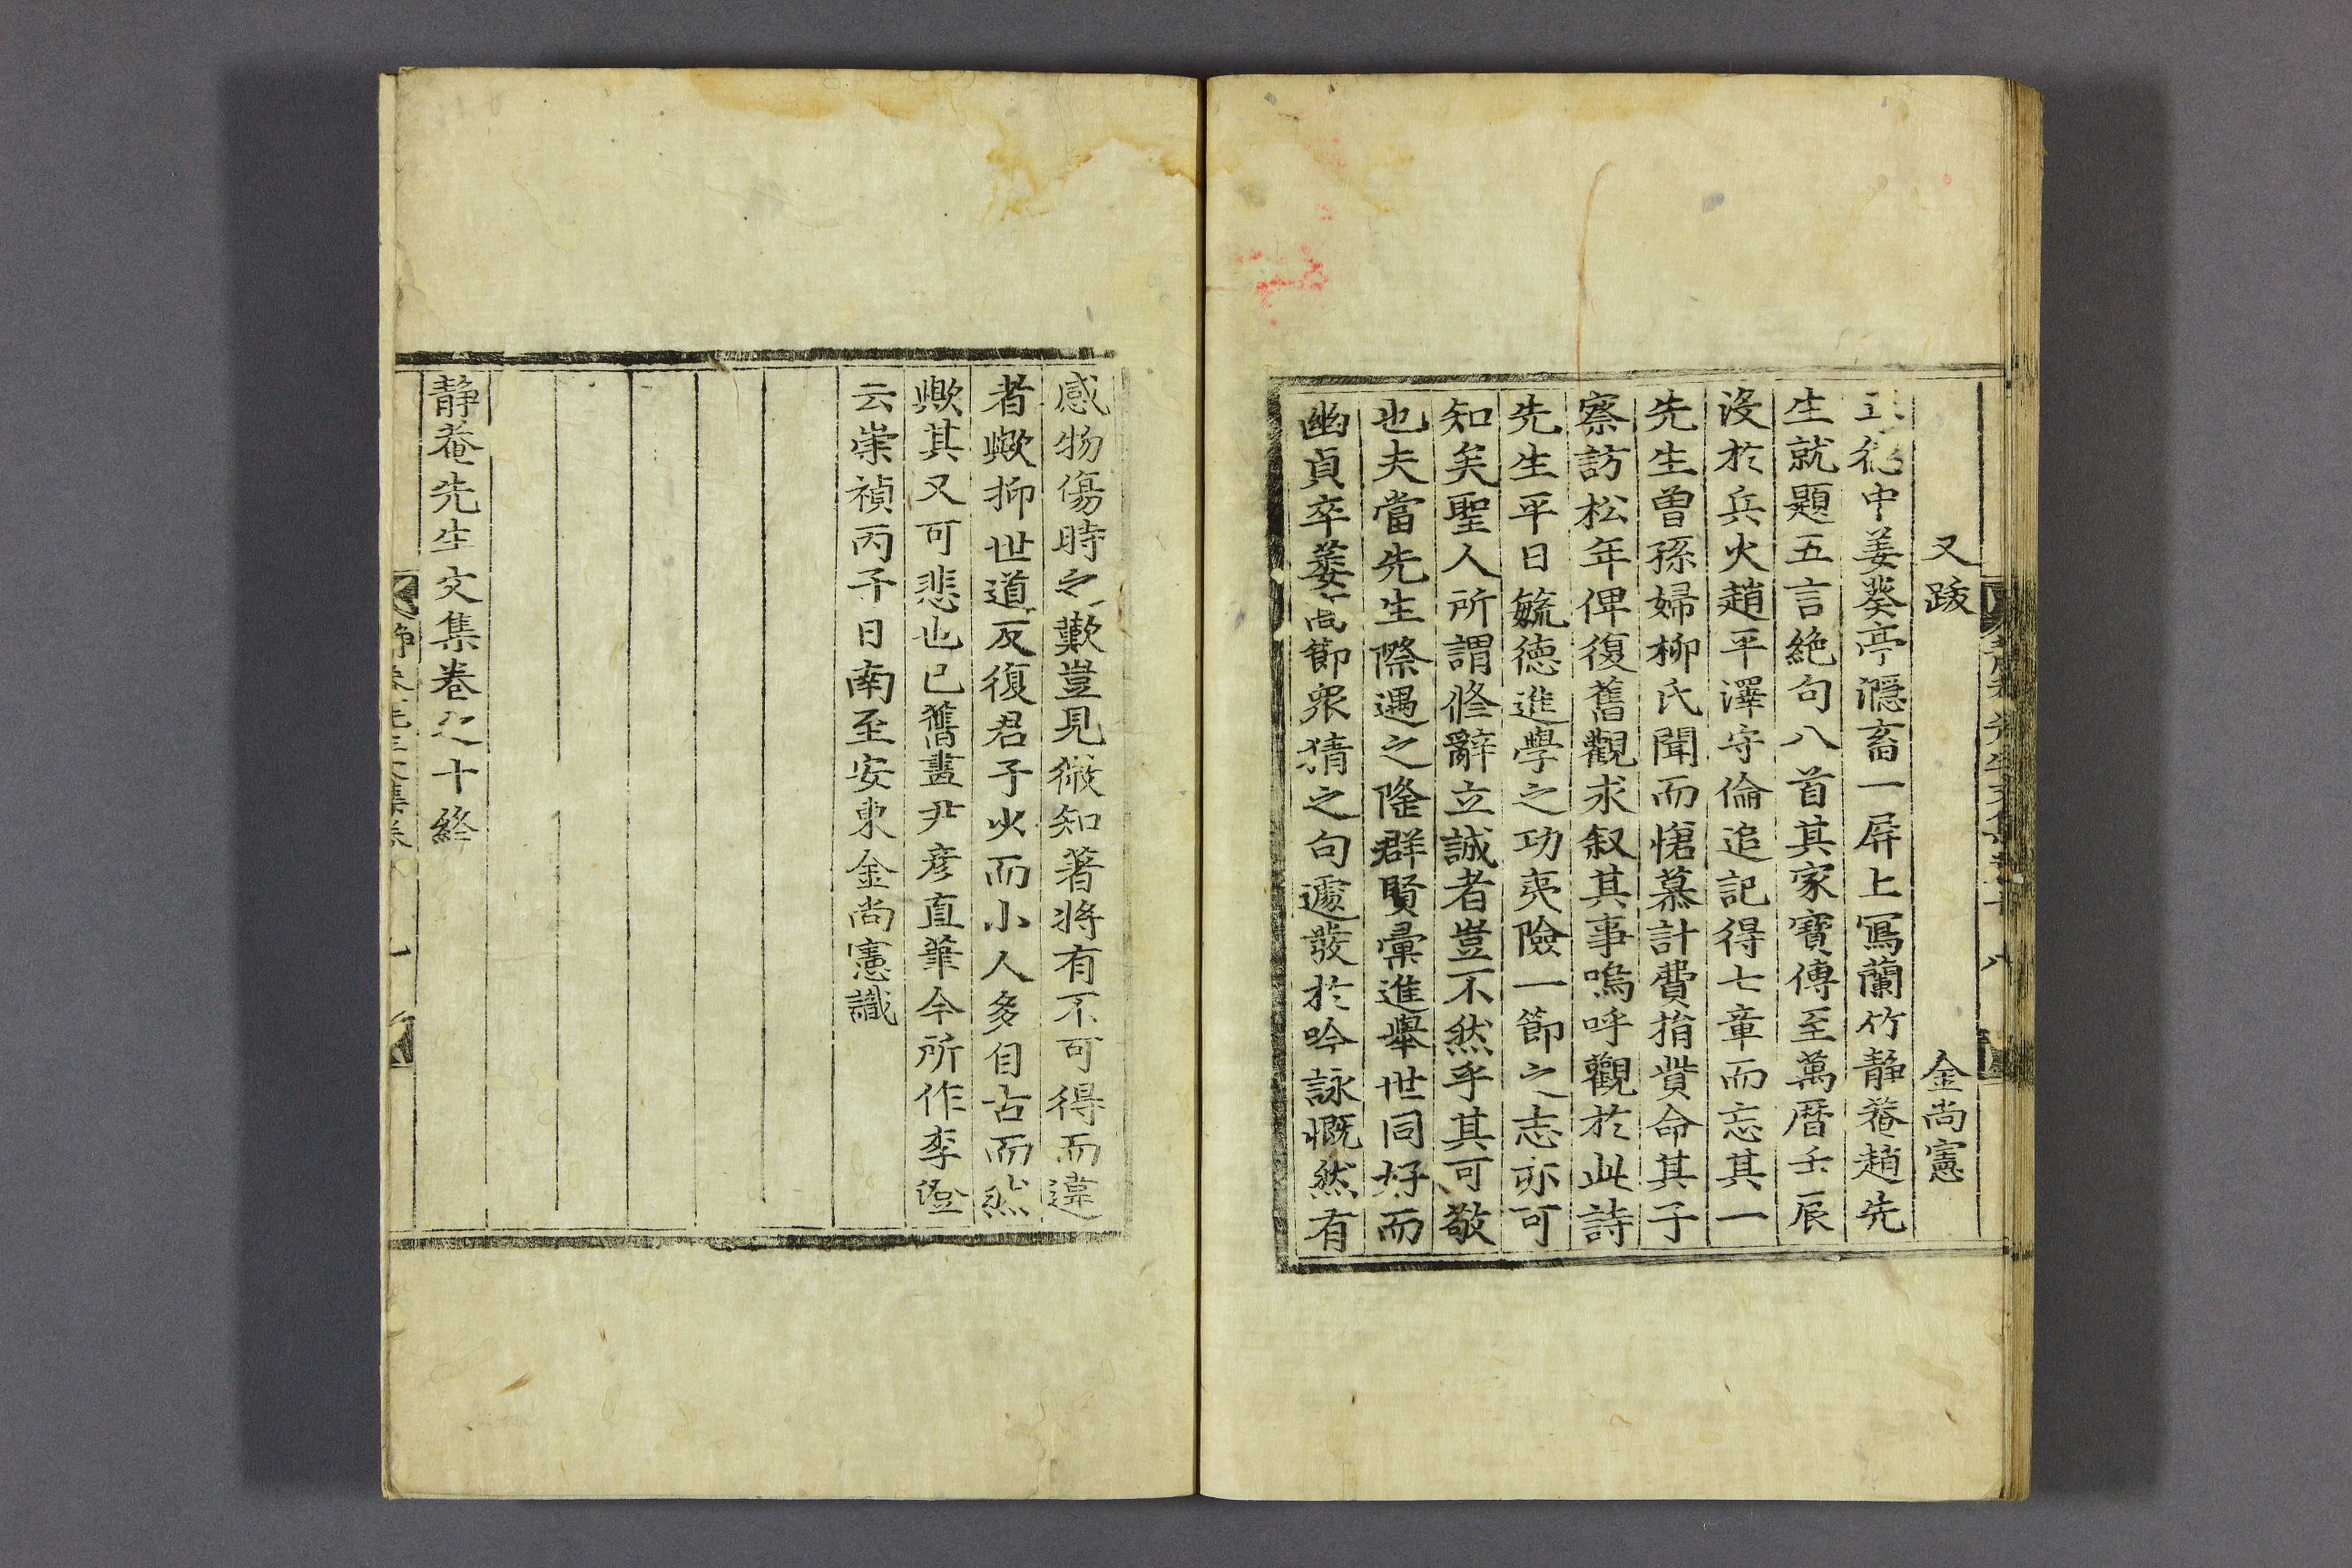 又跋 金尚憲
正德中姜葵亭㶏畜一屏上寫蘭竹靜菴趙先
生就題五言絶句八首其家寶傳至萬曆壬辰
没於兵火趙平澤守倫追記得七章而忘其一
先生曾孫婦柳氏聞而悽慕計費捐貲命其子
察訪松年俾復舊觀求叙其事嗚呼觀於此詩
先生平日毓德進學之功夷險一節之志亦可
知矣聖人所謂修辭立誠者豈不然乎其可敬
也夫當先生際遇之隆群賢彙進擧世同好而
幽貞卒萎高節衆猜之句遽發於吟詠慨然有
感物傷時之歎豈見微知著將有不可得而違
者歟抑世道反復君子少而小人多自古而然
歟其又可悲也已舊畫尹彦直筆今所作李澄
云崇禎丙子日南至安東金尚憲識
靜菴先生文集卷之十終